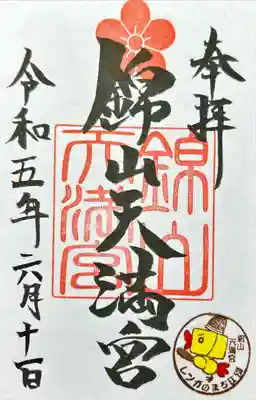 奉拝
錦山天満宮
錦山
天満宮
令和五年六月十一日
錦山
天満宮
レンガのまち江別